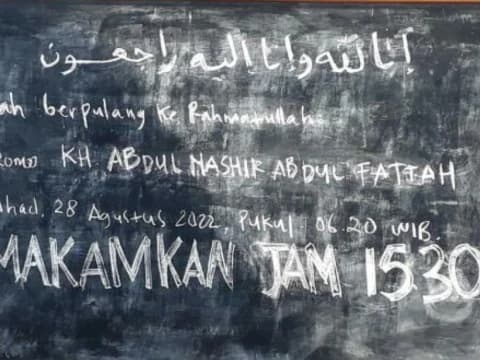 إنا لله وإنا إليه راجعون
ah berpulang ke Rahmatullah
Romo) KH ABDUL NASHIR ABDUL FATTAH
had, 28 Agustus 2022, Pukul 06.20 WIB.
MAKAMKAN JAM 15.30